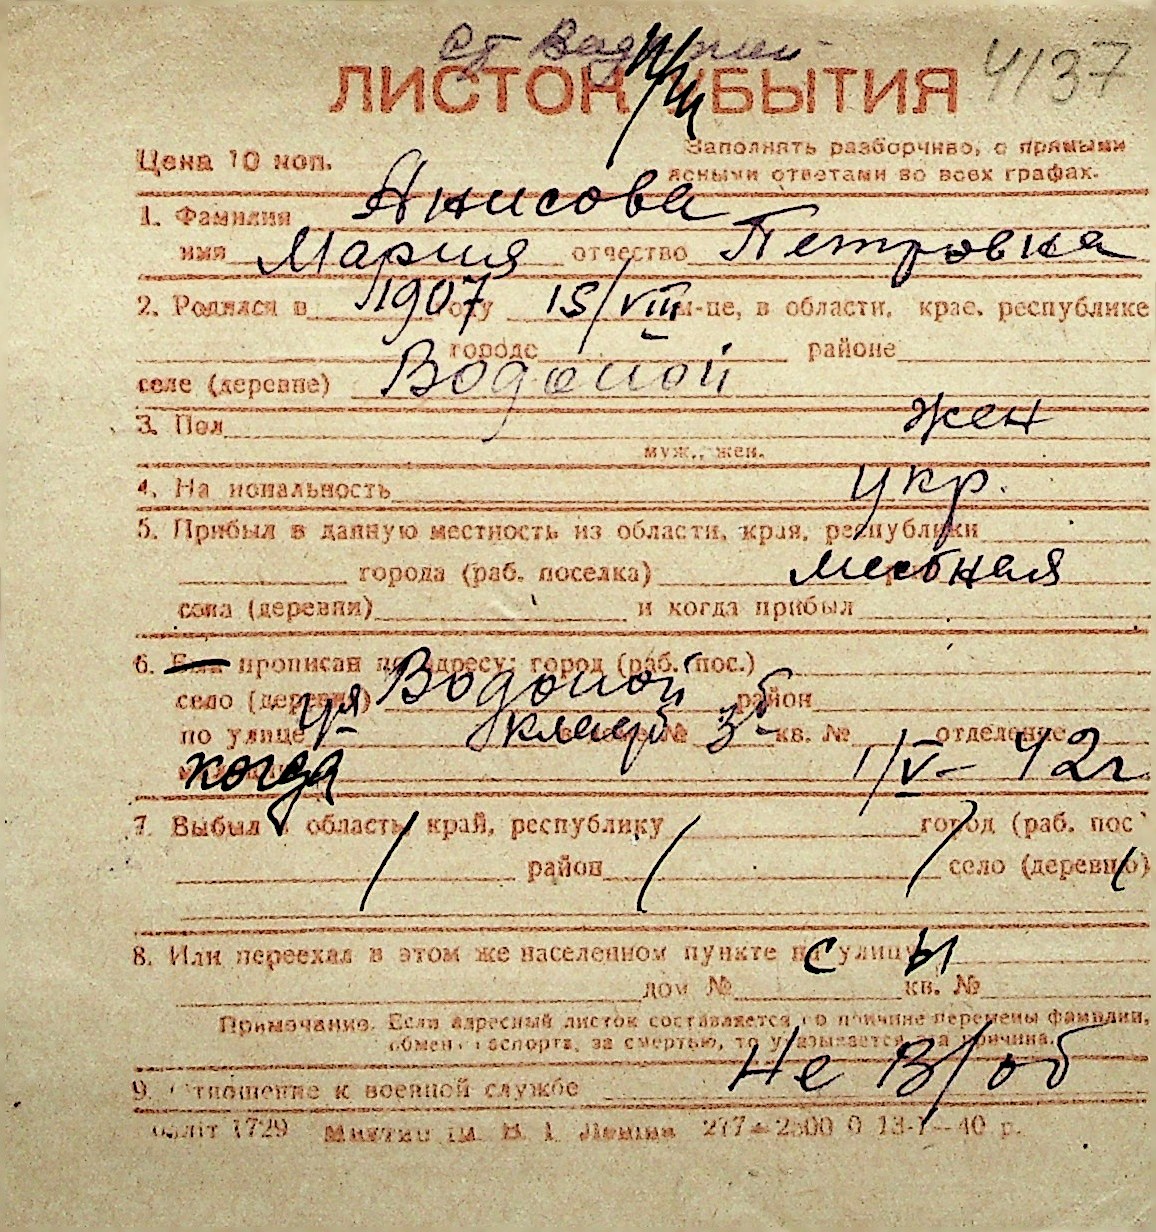 Ст Водопой
ЛИСТОК УБЫТИЯ 4137
Цена 10 коп.
Заполнять разборчиво, с прямыми
ясными ответами во всех графах.
1. Фамилия Анисова
имя Мария отчество Петровна
2. Родился в 1907 году 15/VIII м-це, в области, крае, республике
городе районе
селе (деревне) Водопой
3. Пол жен
муж., жен.
4. Национальность укр.
5. Прибыл в данную местность из области, края, республики
города (раб. поселка) местная
села (деревни) и когда прибыл
6. Был прописан по адресу: город (раб. пос.)
село (деревня) Водопой район
по улице № 3б кв. № отделение
когда 1/V - 42 г
7. Выбыл в область, край, республику город (раб. пос)
район село (деревню)
8. Или переехал в этом же населенном пункте на улицу
дом № кв. №
Примечание. Если адресный листок составляется по причине перемены фамилии,
обмена паспорта, за смертью, то указывается эта причина.
9. Отношение к военной службе Не в/об
обліт 1729 ім. В. І. Леніна 277—2500 0 13-І—40 р.